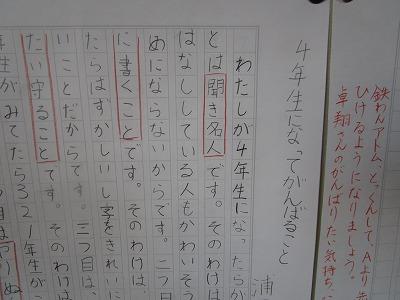 鉄わんアトム、とっくんして、Aより
ひけるようになりましょう。
卓翔さんのがんばりたい気持ち、
4年生になってがんばること
浦
わたしが4年生になったらが
とは聞き名人です。そのわけは
はなししている人もかわいそう
めにならないからです。二つ
に書くことです。そのわけは、
たらはずかしいし字をきれいに
いことだからです。三つ目は、
たい守ることです。そのわけ
年生がみてたら321年生が